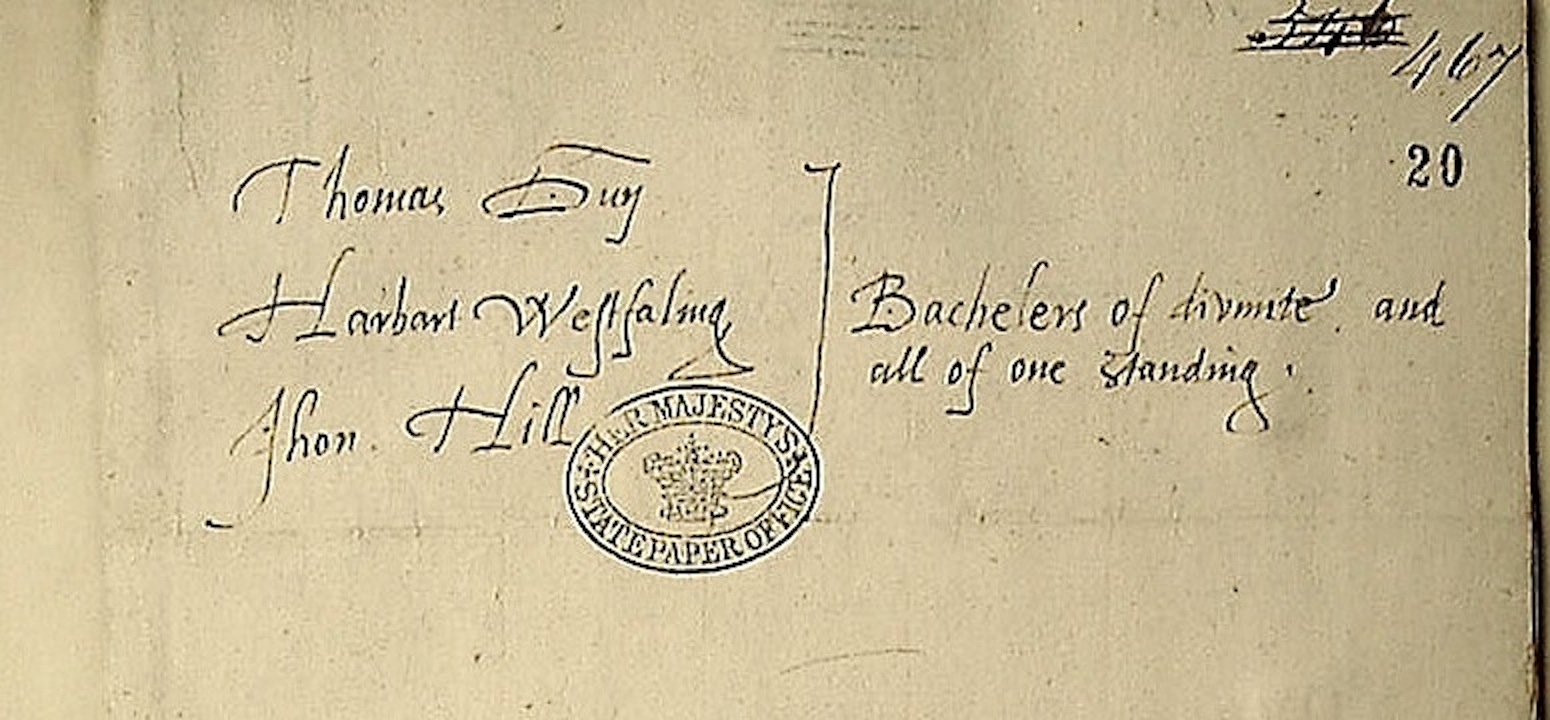 467
20
Thomas
Harbart Westfaling
Jhon. Hill
Bachelers of divinite. and
all of one standing.
HER MAJESTYS
STATE PAPER OFFICE